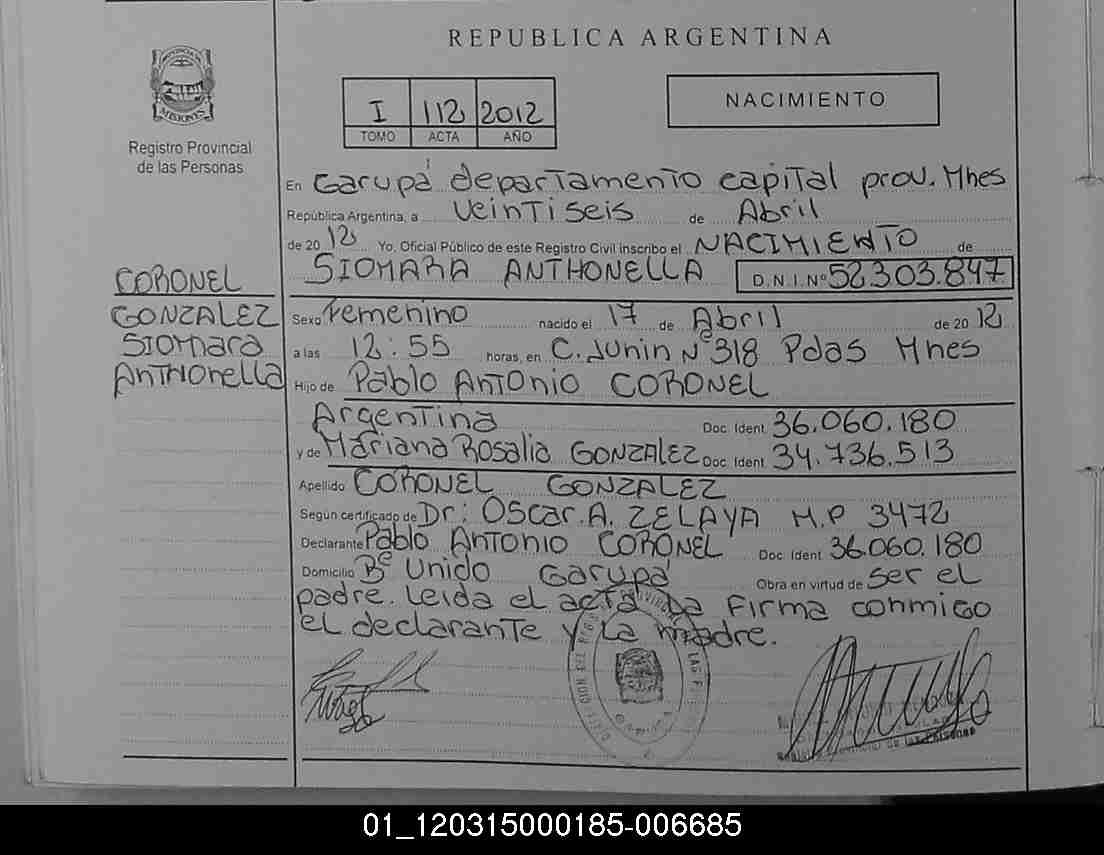 REPUBLICA ARGENTINA
PROVINCIA DE
MISIONES
Registro Provincial
de las Personas
I 112 2012
TOMO ACTA AÑO
NACIMIENTO
En Garupá departamento capital prov. Mnes
República Argentina, a veintiseis de Abril
de 2012 Yo, Oficial Público de este Registro Civil inscribo el NACIMIENTO de
SIOMARA ANTHONELLA D.N.I.Nº 52.303.847
CORONEL
GONZALEZ
SIOmara
AnTHOnella
Sexo Femenino nacido el 17 de Abril de 2012
a las 12:55 horas, en C. Junin Nº 318 Pdas Mnes
Hijo de Pablo Antonio CORONEL
Argentina Doc. Ident 36.060.180
y de Mariana Rosalia GONZALEZ Doc. Ident 34.736.513
Apellido CORONEL GONZALEZ
Según certificado de Dr: Oscar. A. ZELAYA M.P 3472
Declarante Pablo ANTONIO CORONEL Doc. Ident 36.060.180
Domicilio Bº Unido Garupá Obra en virtud de ser el
padre. Leida el acta la Firma conmigo
el declarante y La madre.
01_120315000185-006685